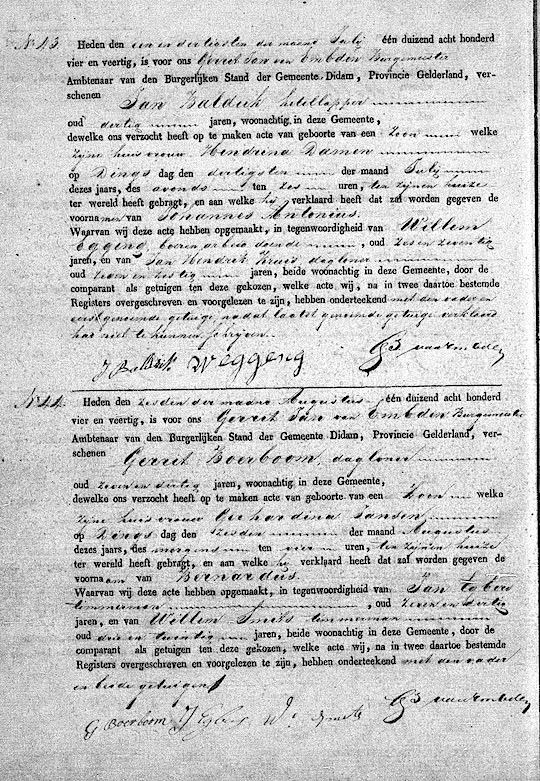 No 43. Heden den een en dertigsten der maand Julij één duizend acht honderd
vier en veertig, is voor ons Gerrit Jan van Embden Burgemeester
Ambtenaar van den Burgerlijken Stand der Gemeente Didam, Provincie Gelderland, ver-
schenen Jan Baldick ketellapper
oud dertig jaren, woonachtig in deze Gemeente,
dewelke ons verzocht heeft op te maken acte van geboorte van een Zoon welke
zijne huisvrouw Hendrina Damen
op Dings dag den dertigsten der maand Julij
dezes jaars, des avonds ten zes uren, ten zijnen huize
ter wereld heeft gebragt, en aan welke hij verklaard heeft dat zal worden gegeven de
voornamen van Johannis Antonius.
Waarvan wij deze acte hebben opgemaakt, in tegenwoordigheid van Willem
Egging, boeren arbeid doende, oud zes en zeventig
jaren, en van Jan Hendrik Kruis dagloner
oud en zestig jaren, beide woonachtig in deze Gemeente, door de
comparant als getuigen ten deze gekozen, welke acte wij, na in twee daartoe bestemde
Registers overgeschreven en voorgelezen te zijn, hebben onderteekend met den vader en
eerstgenoemde getuige nadat laatst genoemde getuige verklaard
had niet te kunnen schrijven.
J Baldick W eggeng GJ van Embden
No 44. Heden den zesden der maand Augustus één duizend acht honderd
vier en veertig, is voor ons Gerrit Jan van Embden Burgemeester
Ambtenaar van den Burgerlijken Stand der Gemeente Didam, Provincie Gelderland, ver-
schenen Gerrit Boerboom, dagloner
oud zeven en dertig jaren, woonachtig in deze Gemeente,
dewelke ons verzocht heeft op te maken acte van geboorte van een Zoon welke
zijne huisvrouw Gerhardina Jansen
op Dings dag den zesden der maand Augustus
dezes jaars, des morgens ten vier uren, ten zijnen huize
ter wereld heeft gebragt, en aan welke hij verklaard heeft dat zal worden gegeven de
voornaam van Bernardus.
Waarvan wij deze acte hebben opgemaakt, in tegenwoordigheid van Jan Egbers
timmerman, oud zeven en dertig
jaren, en van Willem Smits timmerman
oud drie en twintig jaren, beide woonachtig in deze Gemeente, door de
comparant als getuigen ten deze gekozen, welke acte wij, na in twee daartoe bestemde
Registers overgeschreven en voorgelezen te zijn, hebben onderteekend met den vader
en beide getuigen
G Boerboom J Egbers W. Smits GJ van Embden